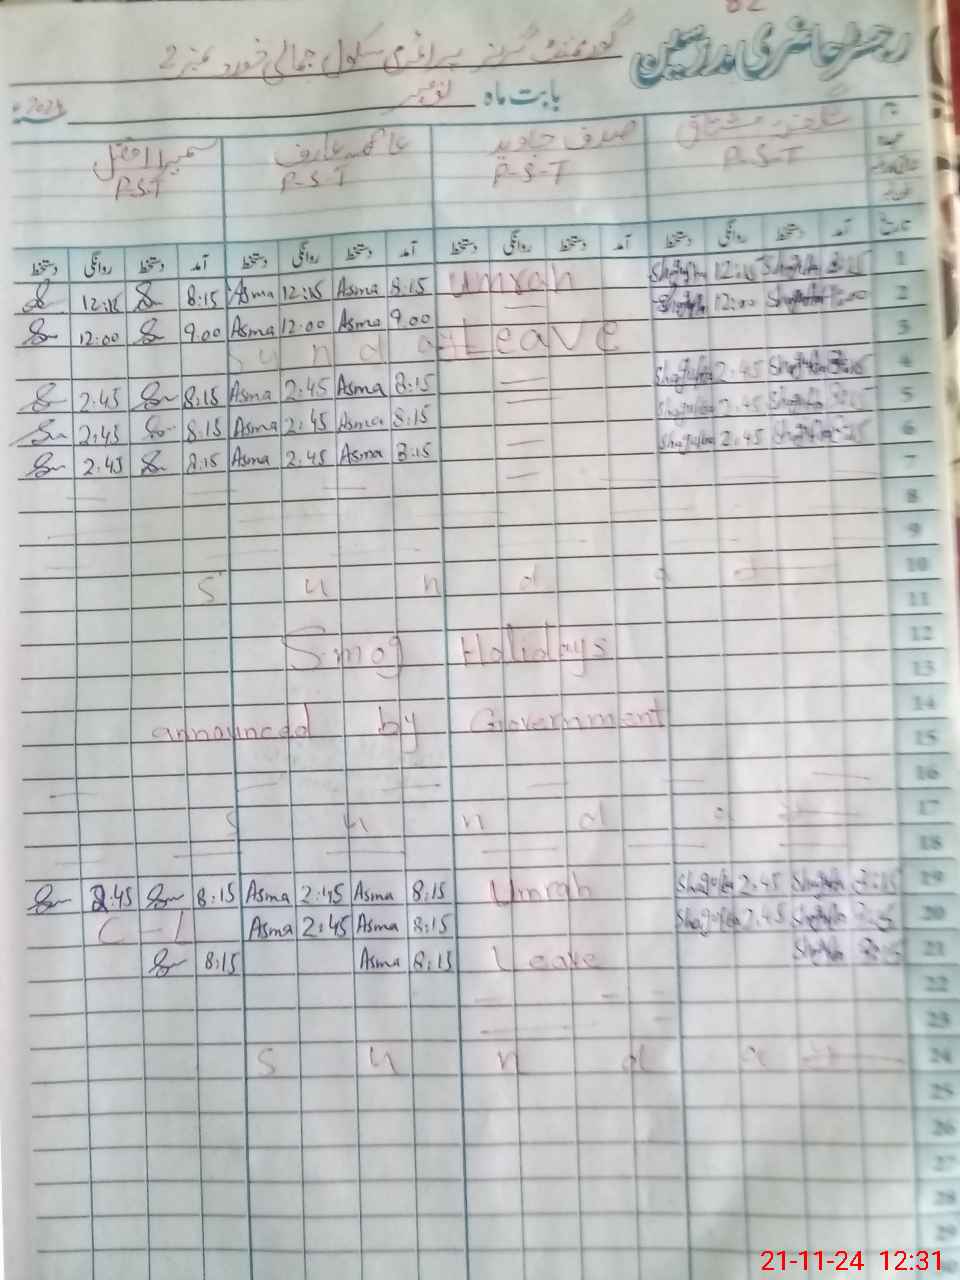 82
رجسٹر حاضری مدرسین گورنمنٹ گرلز پرائمری سکول جمالی خورد نمبر 2
بابت ماہ نومبر 2024ء
نام
شگفتہ مشتاق صدف جاوید عاصمہ عارف سمیرا افضل
P-S-T P-S-T P-S-T P.S.T
تاریخ آمد دستخط روانگی دستخط آمد دستخط روانگی دستخط آمد دستخط روانگی دستخط آمد دستخط روانگی دستخط
12:15 8:15 Asma 12:15 Asma 8:15 Umrah Shagufta 12:15 Shagufta 8:15 1
12:00 9.00 Asma 12:00 Asma 9.00 Shagufta 12:00 Shagufta 2
Sunday Leave 3
2:45 8:15 Asma 2:45 Asma 8:15 Shagufta 2:45 Shagufta 8:15 4
2:45 8:15 Asma 2:45 Asma 8:15 Shagufta 2:45 Shagufta 8:15 5
2:45 8:15 Asma 2:45 Asma 8:15 Shagufta 2:45 Shagufta 8:15 6
7
8
9
Sunday 10
11
Smog Holidays 12
13
announced by Government 14
15
16
Sunday 17
18
2:45 8:15 Asma 2:45 Asma 8:15 Umrah Shagufta 2:45 Shagufta 8:15 19
C-L Asma 2:45 Asma 8:15 Shagufta 2:45 Shagufta 8:15 20
8:15 Asma 8:15 Leave Shagufta 8:15 21
22
23
Sunday 24
25
26
27
28
29
21-11-24 12:31